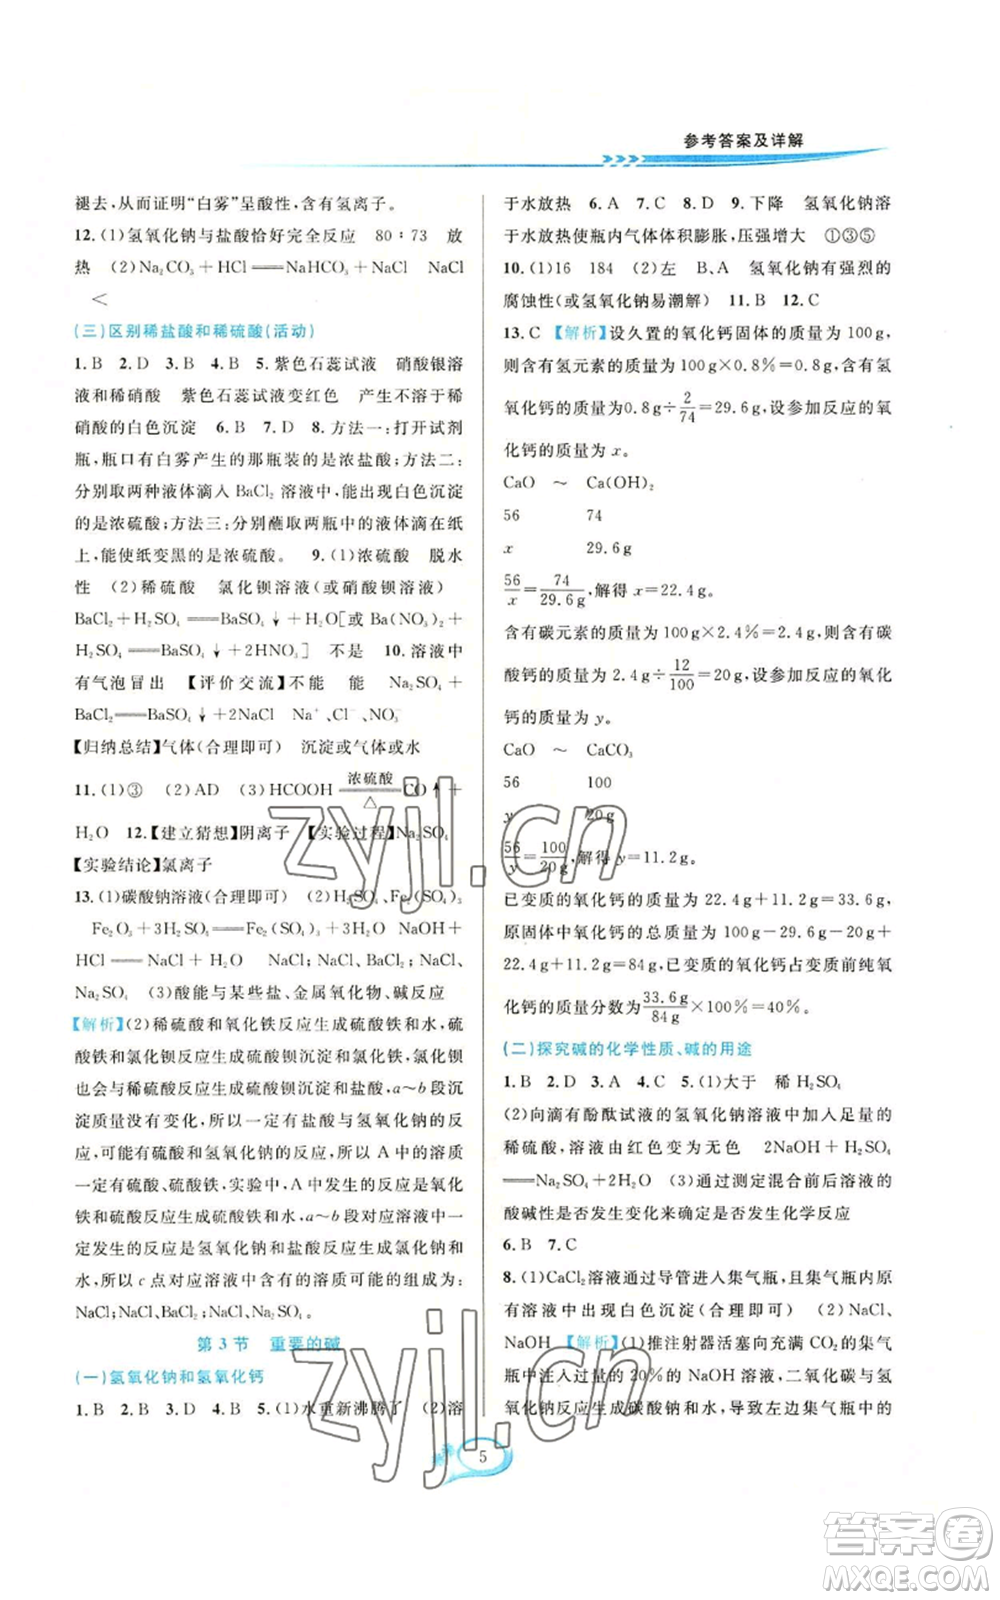 参考答案及详解
褪去,从而证明“白雾”呈酸性,含有氢离子。
12.(1)氢氧化钠与盐酸恰好完全反应　80∶73　放
热　(2)Na₂CO₃＋HCl══NaHCO₃＋NaCl　NaCl
＜
(三)区别稀盐酸和稀硫酸(活动)
1.B　2.D　3.B　4.B　5.紫色石蕊试液　硝酸银溶
液和稀硝酸　紫色石蕊试液变红色　产生不溶于稀
硝酸的白色沉淀　6.B　7.D　8.方法一:打开试剂
瓶,瓶口有白雾产生的那瓶装的是浓盐酸;方法二:
分别取两种液体滴入BaCl₂溶液中,能出现白色沉淀
的是浓硫酸;方法三:分别蘸取两瓶中的液体滴在纸
上,能使纸变黑的是浓硫酸。　9.(1)浓硫酸　脱水
性　(2)稀硫酸　氯化钡溶液(或硝酸钡溶液)
BaCl₂＋H₂SO₄══BaSO₄↓＋2HCl[或Ba(NO₃)₂＋
H₂SO₄══BaSO₄↓＋2HNO₃]　不是　10.溶液中
有气泡冒出　【评价交流】不能　能　Na₂SO₄＋
BaCl₂══BaSO₄↓＋2NaCl　Na⁺、Cl⁻、NO₃⁻
【归纳总结】气体(合理即可)　沉淀或气体或水
11.(1)③　(2)AD　(3)HCOOH══浓硫酸△══CO↑＋
H₂O　12.【建立猜想】阴离子　【实验过程】Na₂SO₄
【实验结论】氯离子
13.(1)碳酸钠溶液(合理即可)　(2)H₂SO₄、Fe₂(SO₄)₃
Fe₂O₃＋3H₂SO₄══Fe₂(SO₄)₃＋3H₂O　NaOH＋
HCl══NaCl＋H₂O　NaCl;NaCl、BaCl₂;NaCl、
Na₂SO₄　(3)酸能与某些盐、金属氧化物、碱反应
【解析】(2)稀硫酸和氧化铁反应生成硫酸铁和水,硫
酸铁和氯化钡反应生成硫酸钡沉淀和氯化铁,氯化钡
也与稀硫酸反应生成硫酸钡沉淀和盐酸,a～b段沉
淀质量没有变化,所以一定有盐酸与氢氧化钠的反
应,所以一定有盐酸和氢氧化钠,所以A中的溶质
一定有硫酸、硫酸铁,实验中,A中发生的反应是氧化
铁和硫酸反应生成硫酸铁和水,a～b段对应溶液中一
定发生的反应是氢氧化钠和盐酸反应生成氯化钠和水
,所以c点对应溶液中的溶质可能的组成为:
NaCl;NaCl、BaCl₂;NaCl、Na₂SO₄。
第3节　重要的碱
(一)氢氧化钠和氢氧化钙
1.B　2.B　3.D　4.B　5.(1)水重新沸腾了　(2)溶
于水放热　6.A　7.D　8.D　9.下降　氢氧化钠溶
于水放热使瓶内气体体积膨胀,压强增大　①③⑤
10.(1)16　184　(2)左　B、A　氢氧化钠有强烈的
腐蚀性(或氢氧化钠易潮解)　11.B　12.C
13.C　【解析】设久置的氧化钙固体的质量为100g,
则含有氢元素的质量为100g×0.8%＝0.8g,含有氢
氧化钙的质量为0.8g÷2/74＝29.6g,设参加反应的氧
化钙的质量为x。
CaO　～　Ca(OH)₂
56　　74
x　　29.6g
56/x＝74/29.6g,解得x＝22.4g。
含有碳元素的质量为100g×2.4%＝2.4g,则含有碳
酸钙的质量为2.4g÷12/100＝20g,设参加反应的氧化
钙的质量为y。
CaO　～　CaCO₃
56　　100
y　　20g
56/y＝100/20g,解得y＝11.2g。
已变质的氧化钙的质量为22.4g＋11.2g＝33.6g,
原固体中氧化钙的总质量为100g－29.6g－20g＋
22.4g＋11.2g＝84g,已变质的氧化钙占变质前纯氧
化钙的质量分数为33.6g/84g×100%＝40%。
(二)探究碱的化学性质、碱的用途
1.B　2.D　3.A　4.C　5.(1)大于　稀H₂SO₄
(2)向滴有酚酞试液的氢氧化钠溶液中加入足量的
稀硫酸,溶液由红色变为无色　2NaOH＋H₂SO₄
══Na₂SO₄＋2H₂O　(3)通过测定混合前后溶液的
酸碱性是否发生变化来确定是否发生化学反应
6.B　7.C
8.(1)CaCl₂溶液通过导管进入集气瓶,且集气瓶内原
有溶液中出现白色沉淀(合理即可)　(2)NaCl、
NaOH　【解析】(1)推注射器活塞向充满CO₂的集气
瓶中注入过量的20%的NaOH溶液,二氧化碳与氢
氧化钠反应生成碳酸钠和水,导致左边集气瓶中的
5
zyjl.cn
zyjl.cn
答案卷
MXQE.COM